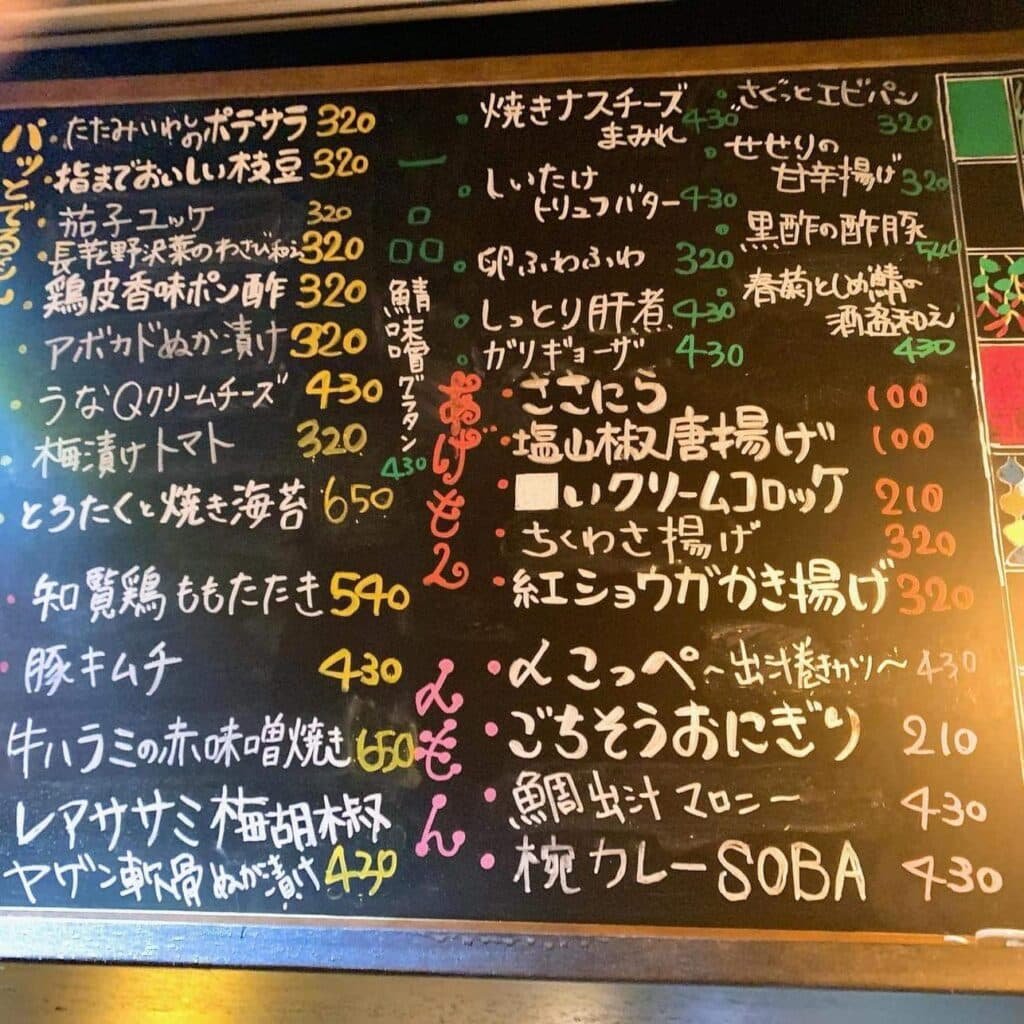 パッとでるヨン
・たたみいわしのポテサラ 320
・指までおいしい枝豆 320
・茄子ユッケ 320
・長芋と野沢菜のわさび和え 320
・鶏皮香味ポン酢 320
・アボカドぬか漬け 320
・うなQクリームチーズ 430
・梅漬けトマト 320
・とろたくと焼き海苔 650
・知覧鶏ももたたき 540
・豚キムチ 430
牛ハラミの赤味噌焼き 650
レアササミ梅胡椒
ヤゲン軟骨ぬか漬け 430
一品
鯖味噌グラタン 430
・焼きナスチーズ
まみれ 430
・しいたけ
トリュフバター 430
・卵ふわふわ 320
・しっとり肝煮 430
・ガリギョーザ 430
・さくっとエビパン 320
・せせりの
甘辛揚げ 320
・黒酢の酢豚 540
・春菊としめ鯖の
酒盗和え 430
あげもの
・ささにら 100
・塩山椒唐揚げ 100
・□いクリームコロッケ 210
・ちくわさ揚げ 320
・紅ショウガかき揚げ 320
〆もん
・〆こっぺ〜出汁巻きカツ〜 430
・ごちそうおにぎり 210
・鯛出汁マロニー 430
・椀カレーSOBA 430